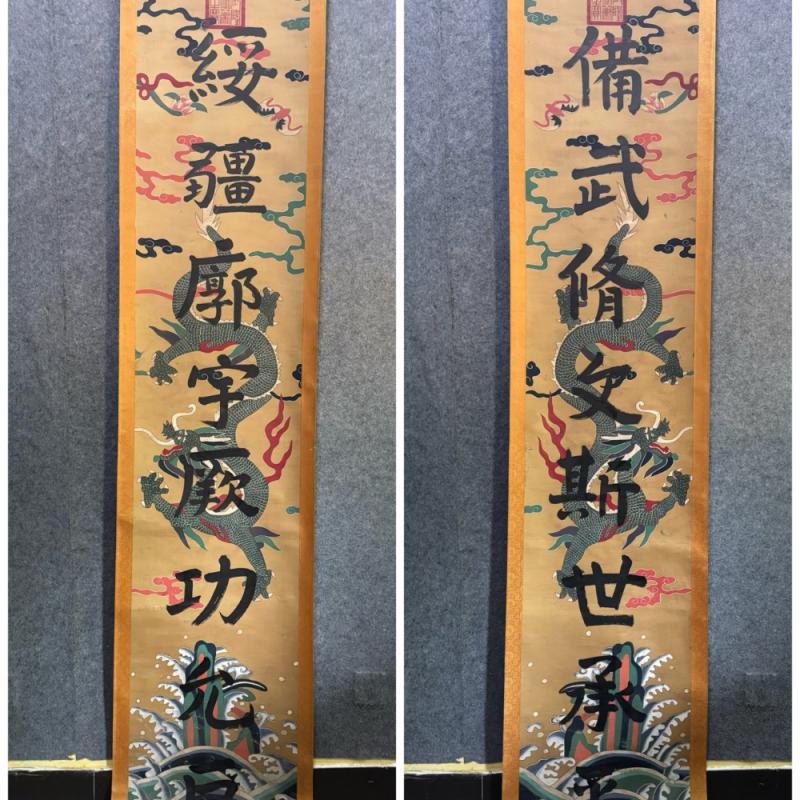 綏疆廓宇厥功允
備武脩文斯世承